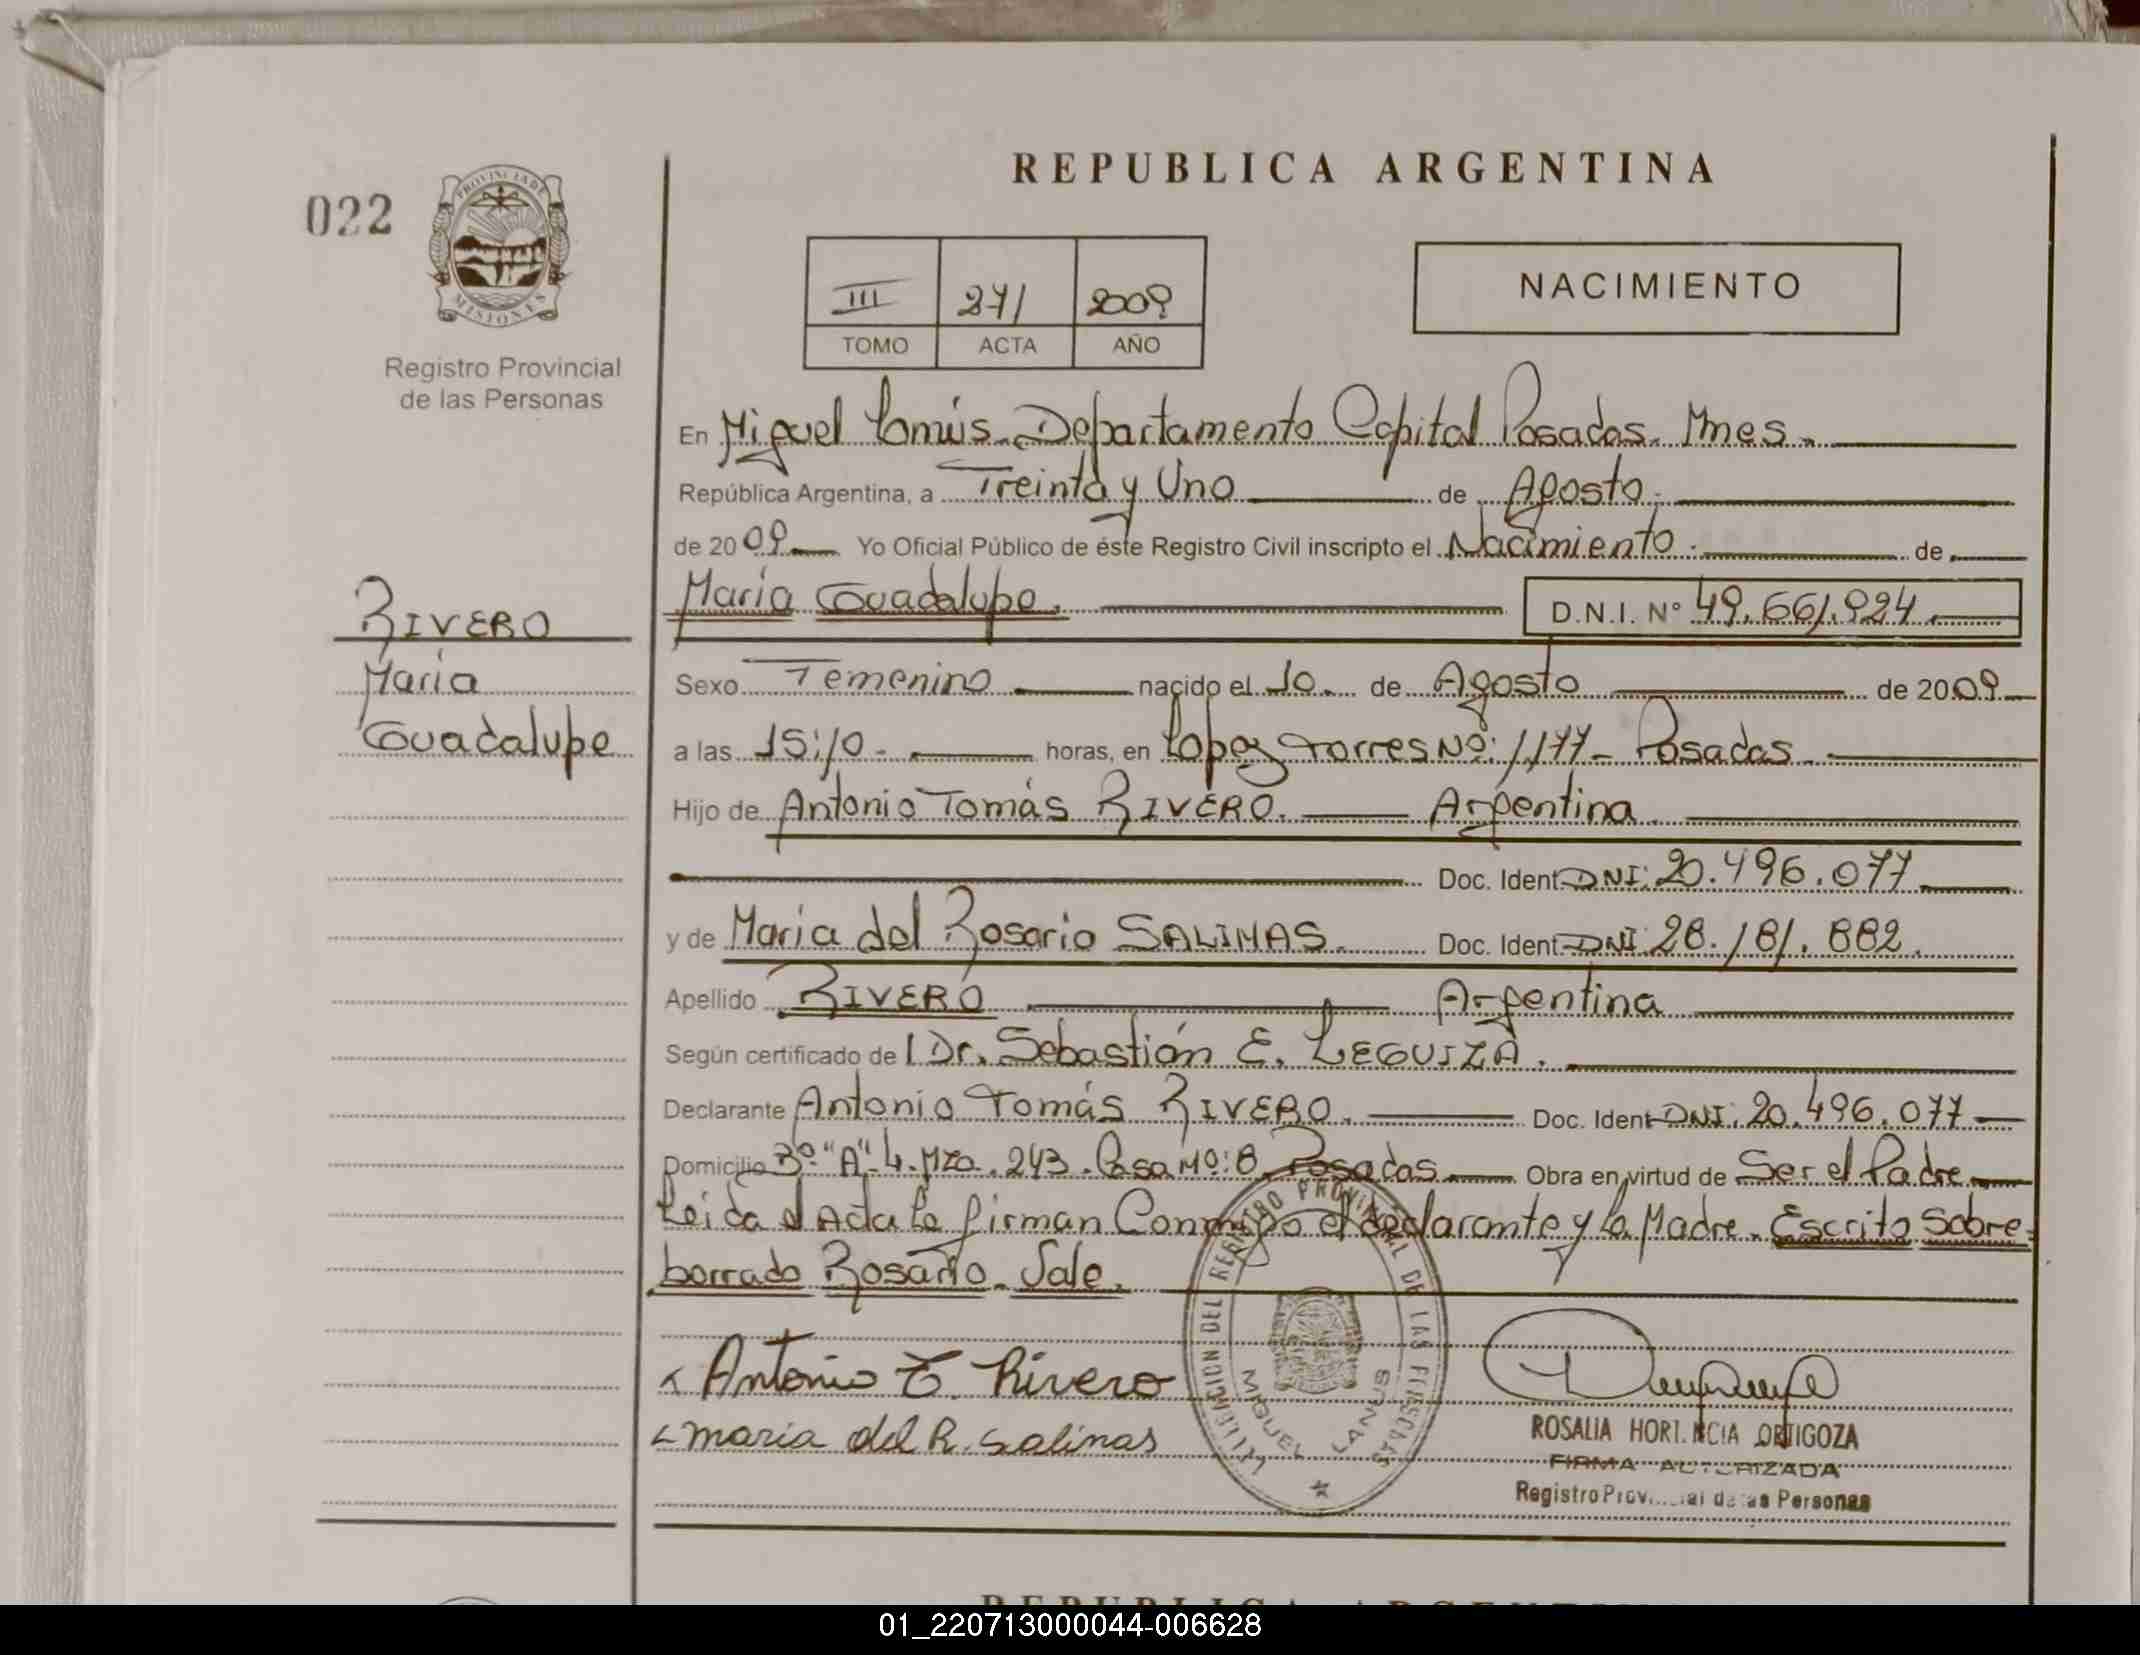 REPUBLICA ARGENTINA
022
PROVINCIA DE
MISIONES
Registro Provincial
de las Personas
III 271 2009
TOMO ACTA AÑO
NACIMIENTO
En Miguel Lanús. Departamento Capital Posadas. Mnes.
República Argentina, a Treinta y Uno de Agosto.
de 2009 Yo Oficial Público de éste Registro Civil inscripto el Nacimiento. de
María Guadalupe. D.N.I. Nº 49.661.924.
RIVERO
María
Guadalupe
Sexo Femenino nacido el 10. de Agosto de 2009
a las 15:10. horas, en Lopez Torres Nº: 1177 - Posadas.
Hijo de Antonio Tomás RIVERO. Argentina.
Doc. Ident. DNI: 20.496.077
y de María del Rosario SALINAS. Doc. Ident. DNI: 28.181.882.
Apellido RIVERO Argentina
Según certificado del Dr. Sebastián E. LEGUIZA.
Declarante Antonio Tomás RIVERO. Doc. Ident. DNI: 20.496.077
Domicilio Bº "A" 4. Mza. 243. Casa Nº: 8. Posadas. Obra en virtud de Ser el Padre
Leida el Acta la firman Conmigo el declarante y la Madre. Escrito Sobre-
borrado Rosario. Vale.
Antonio T. Rivero
maria del R. Salinas
DELEGACION DEL REGISTRO PROVINCIAL DE LAS PERSONAS
MIGUEL LANUS
ROSALIA HORTENCIA ORTIGOZA
FIRMA AUTORIZADA
Registro Provincial de las Personas
REPUBLICA ARGENTINA
01_220713000044-006628